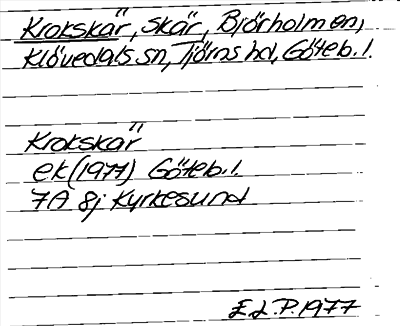 Krokskär, Skär, Björholmen,
Klövedals sn, Tjörns hd, Göteb. l.
Krokskär
ek (1977) Göteb. l.
7A 8j Kyrkesund
E.L.P. 1977